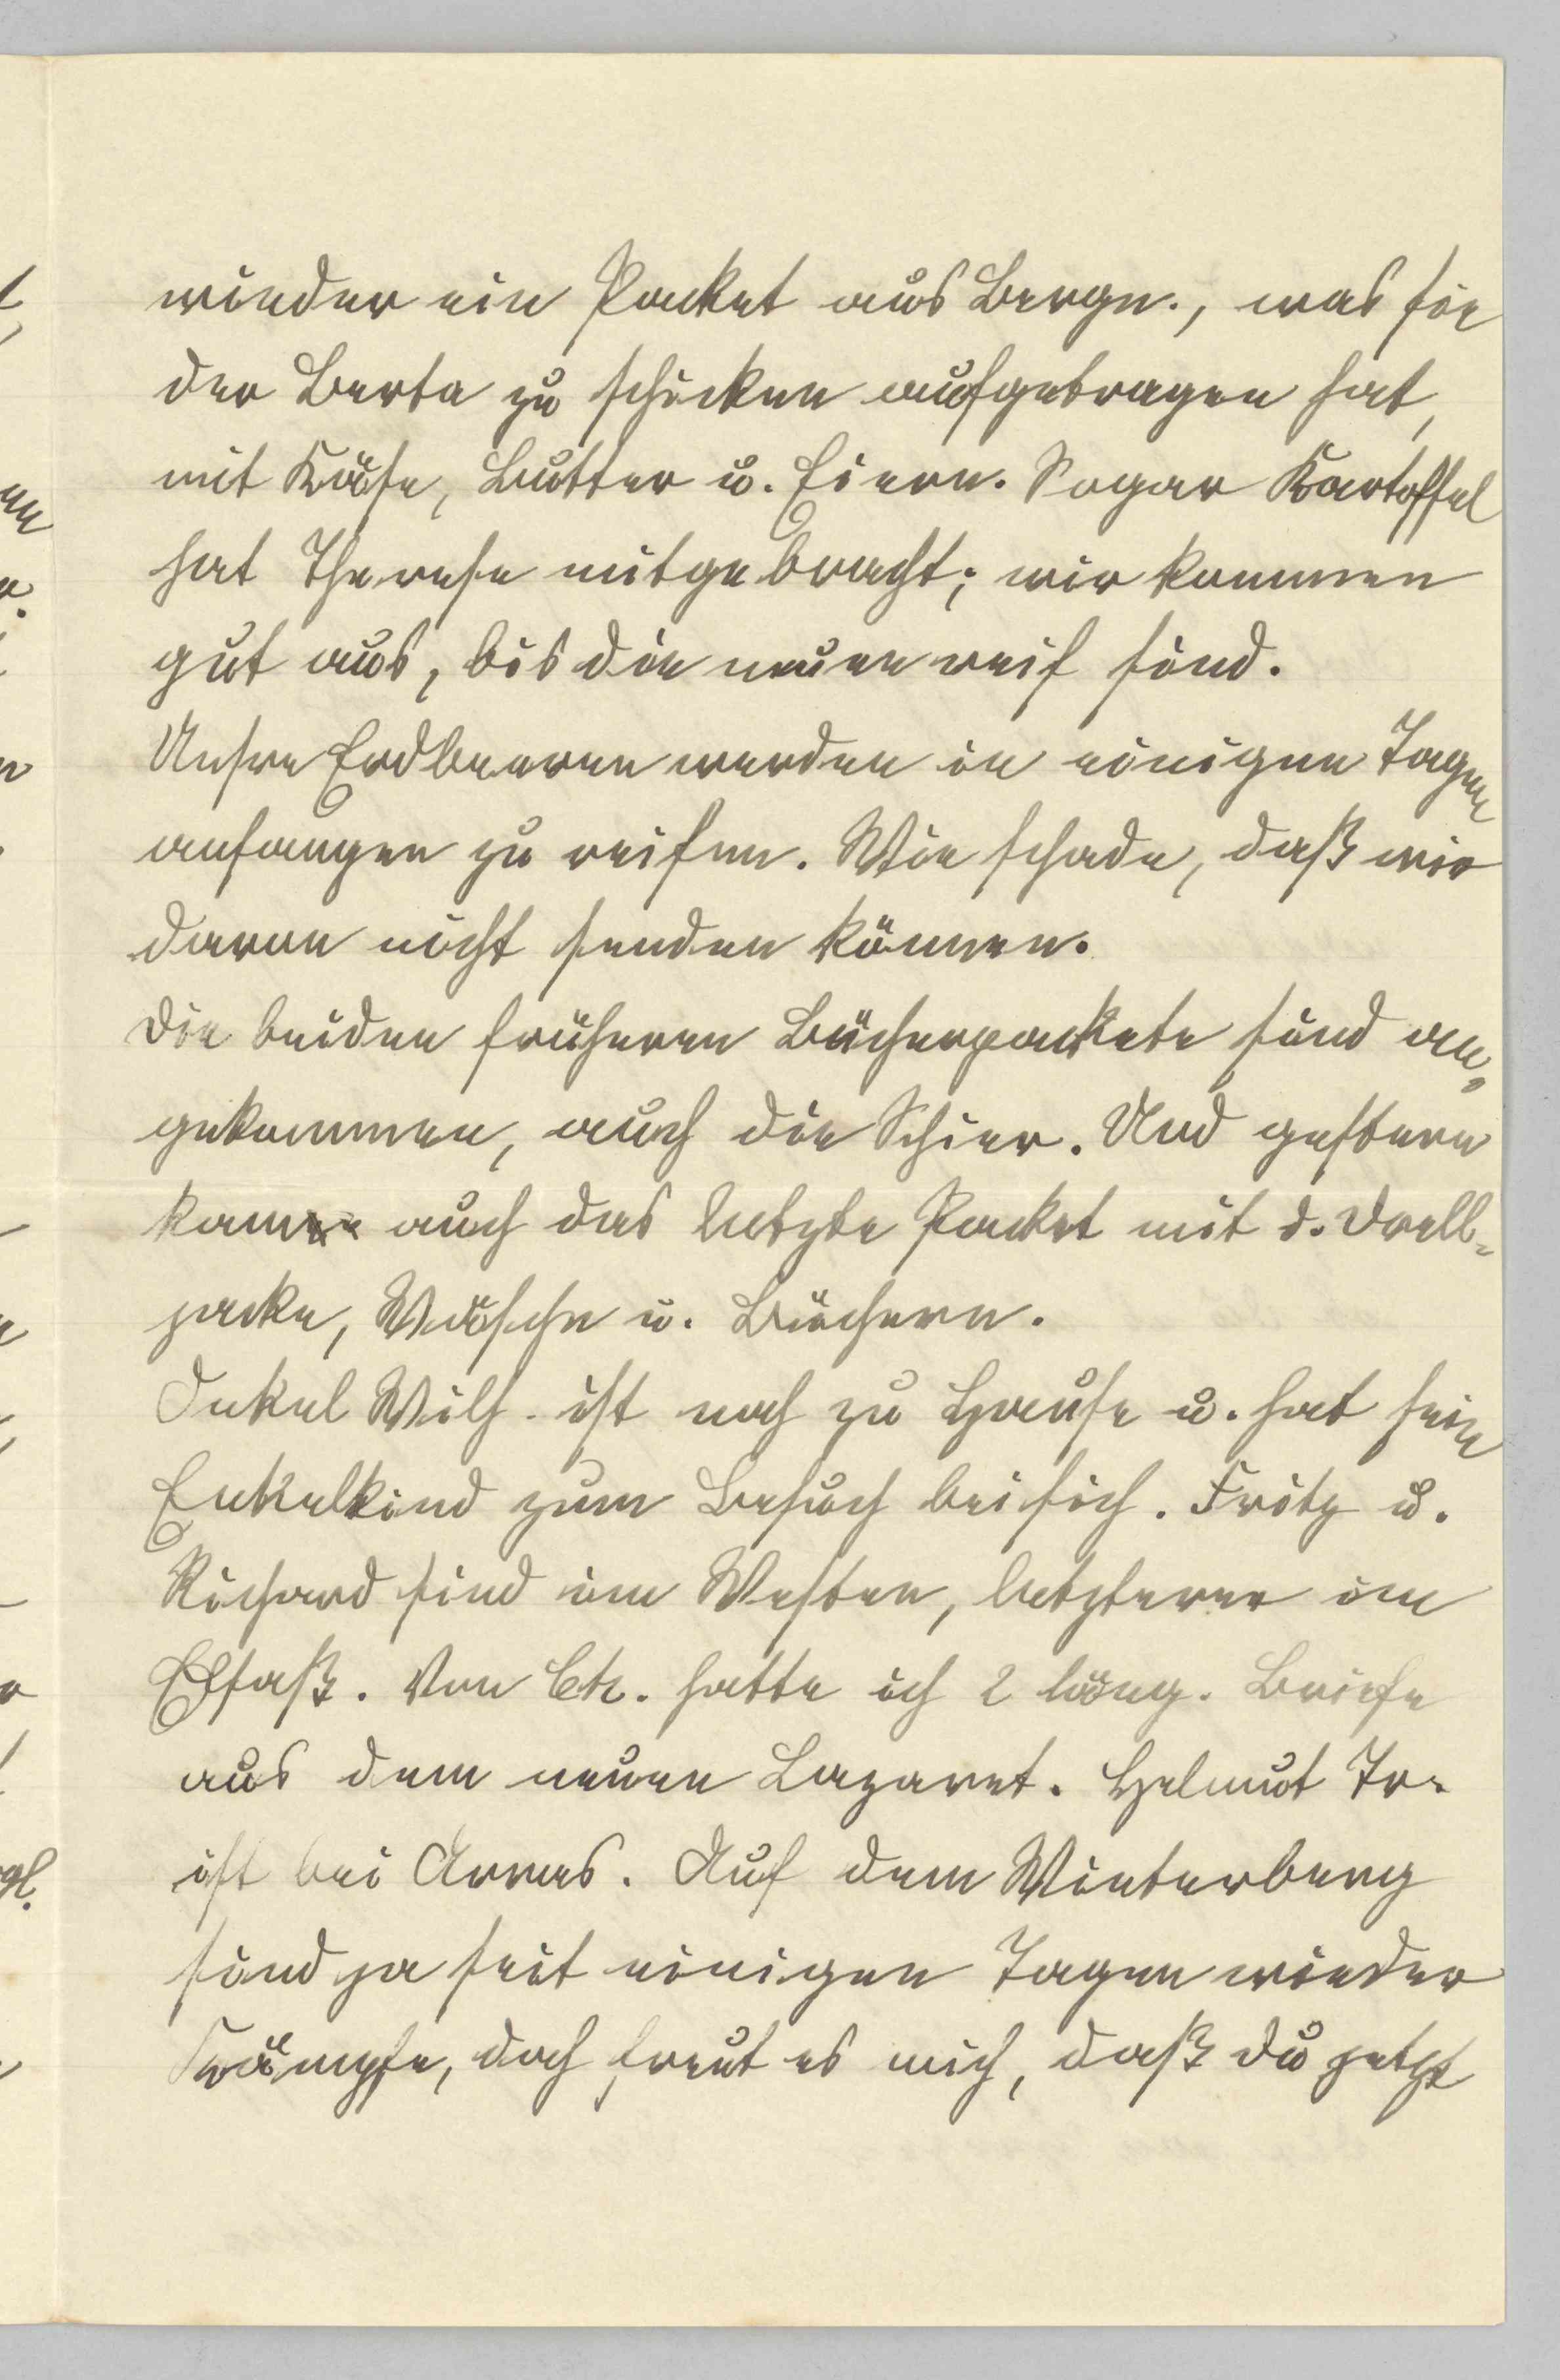 wieder ein Packet aus Bergn., was sie
der Berta zu schicken aufgetragen hat,
mit Käse, Butter u. Eiern. Sogar Kartoffel
hat Therese mitgebracht; wir kommen
gut aus, bis die neuen reif sind.
Unsre Erdbeeren werden in einigen Tagen
anfangen zu reifen. Wie schade, daß wir
davon nicht senden können.
Die beiden früheren Bücherpackete sind an-
gekommen, auch die Schier. Und gestern
kam auch das letzte Packet mit d. Drell-
jacke, Wäsche u. Büchern.
Onkel Wilh. ist noch zu Hause u. hat sein
Enkelkind zum Besuch bei sich. Fritz u.
Richard sind im Westen, letzterer im
Elsaß. Von hatte ich 2 läng. Briefe
aus dem neuen Lazaret. Helmut Tr.
ist bei Arras. Auf dem Winterberg
sind ja seit einigen Tagen wieder
Kämpfe, doch freut es mich, daß du jetzt